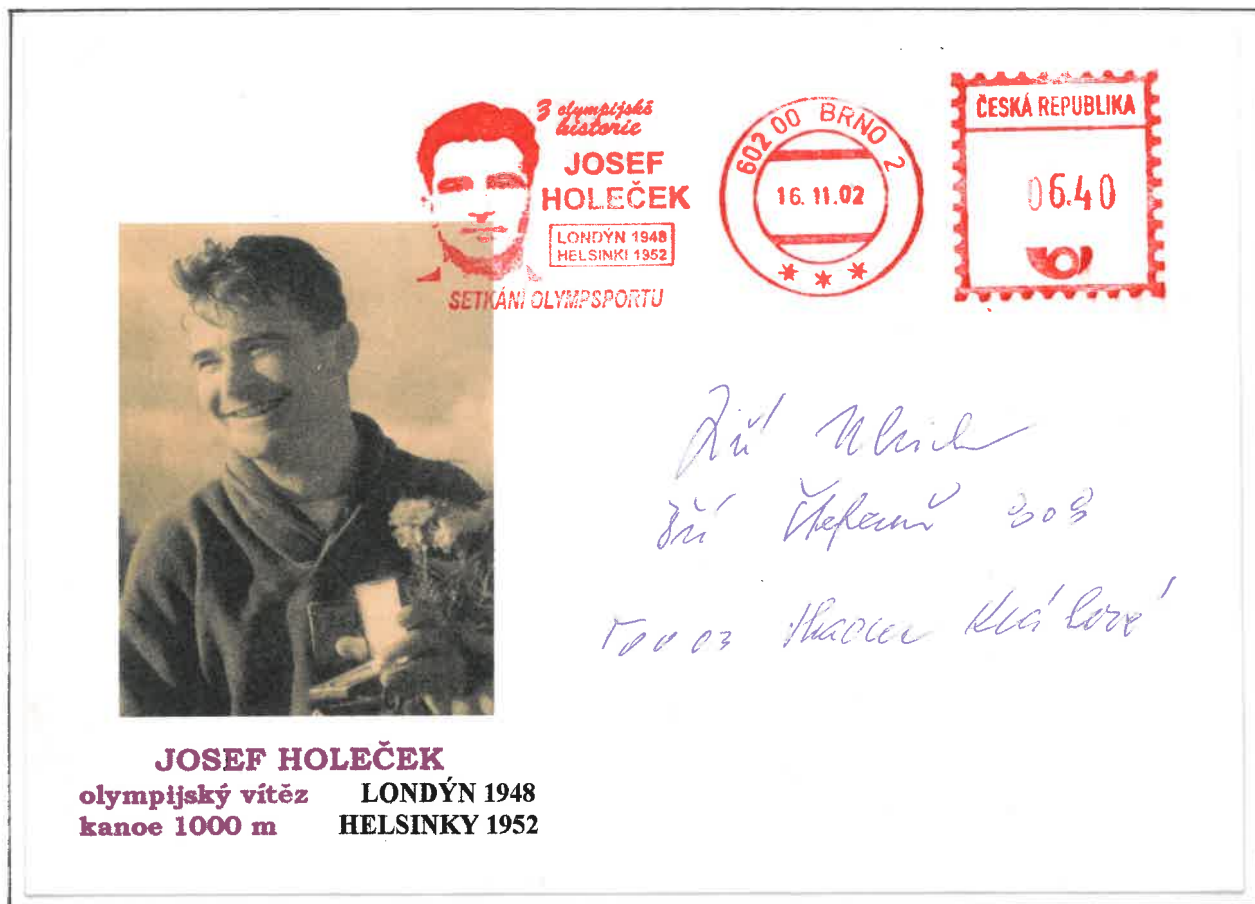 Z olympijské
historie
JOSEF
HOLEČEK
LONDÝN 1948
HELSINKI 1952
SETKÁNÍ OLYMPSPORTU
602 00 BRNO 2
16. 11.02
* * *
ČESKÁ REPUBLIKA
06.40
Jiří Ulrich
303
Králové
JOSEF HOLEČEK
olympijský vítěz LONDÝN 1948
kanoe 1000 m HELSINKY 1952